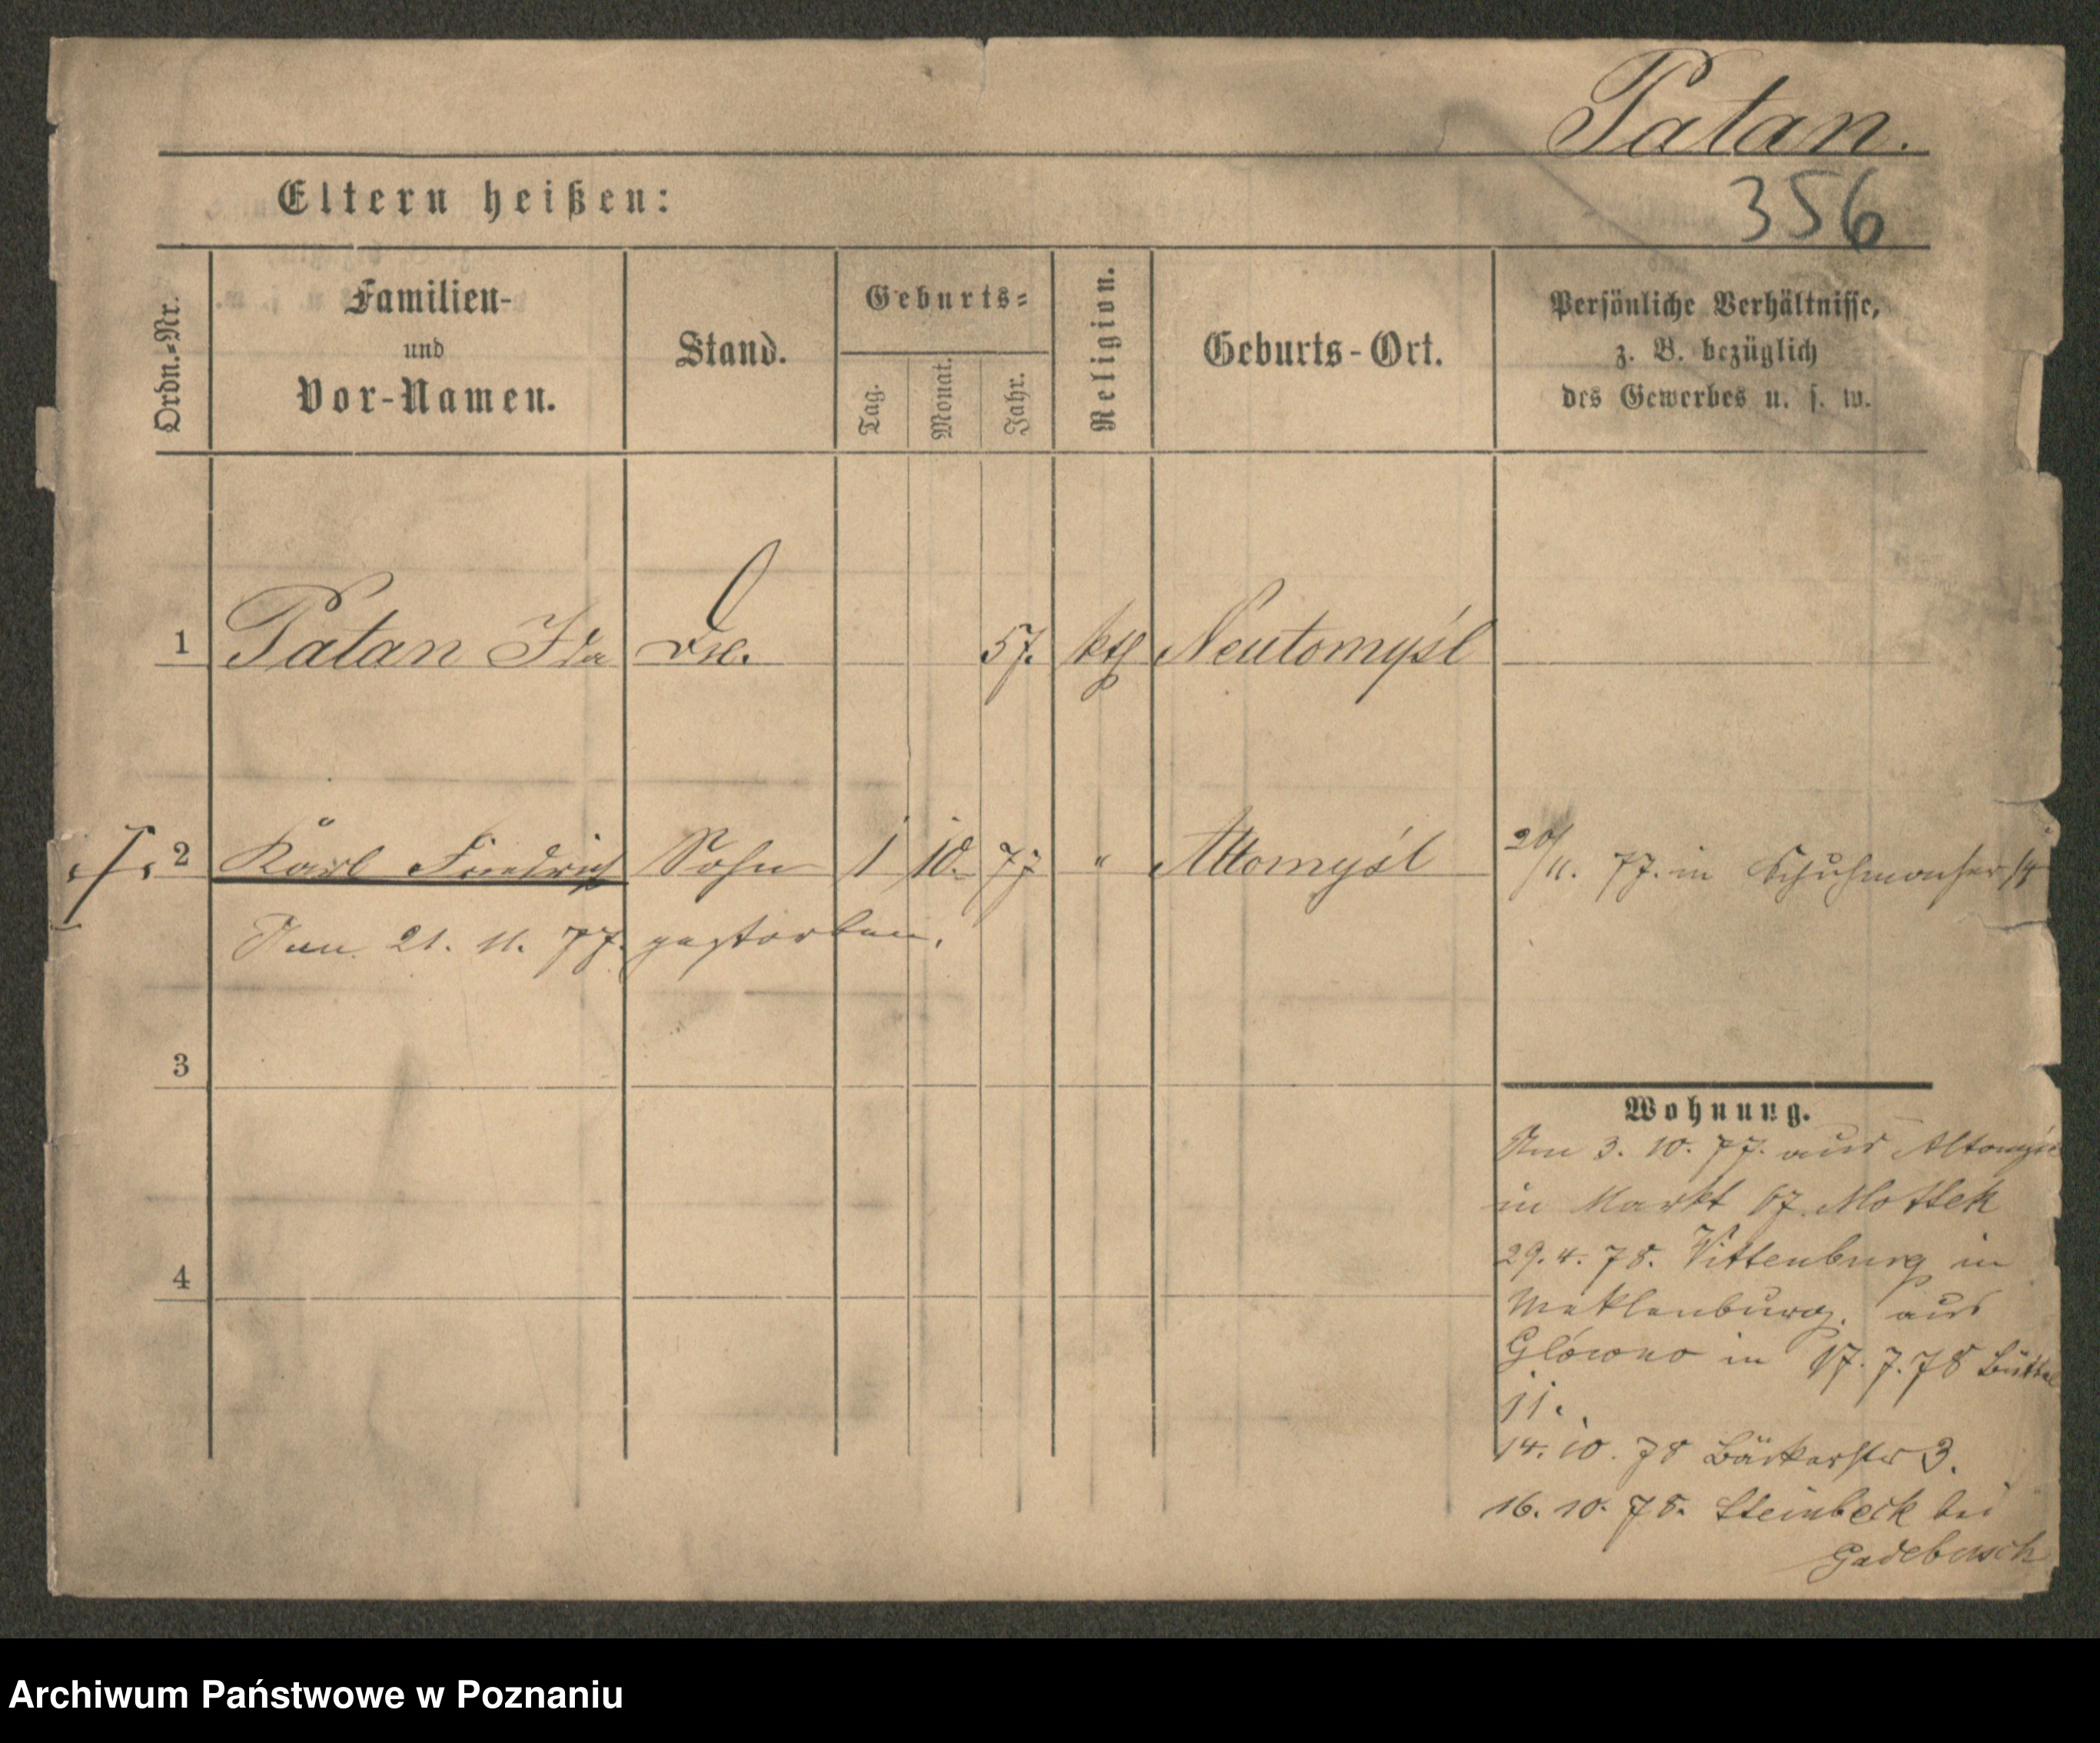 Patan.
356
Eltern heißen:
Ordn.=Nr.
Familien-
und
Vor-Namen.
Stand.
Geburts=
Tag.
Monat.
Jahr.
Religion.
Geburts-Ort.
Persönliche Verhältnisse,
z. B. bezüglich
des Gewerbes u. s. w.
1 Patan Ida 57. ktl Neutomyśl
2 Karl Friedrich Sohn 1 10. 77 " Altomyśl
20/11. 77. in
Am 21. 11. 77. gestorben.
3
4
Wohnung.
Am 3. 10. 77. aus Altomyśl
in Markt 67. Mottek
29. 4. 78. Wittenburg in
Meklenburg. aus
Glówno in 17. 7. 78
11.
14. 10. 78 Bäckerstr 3.
16. 10. 78. Steinbeck bei
Gadebusch
Archiwum Państwowe w Poznaniu